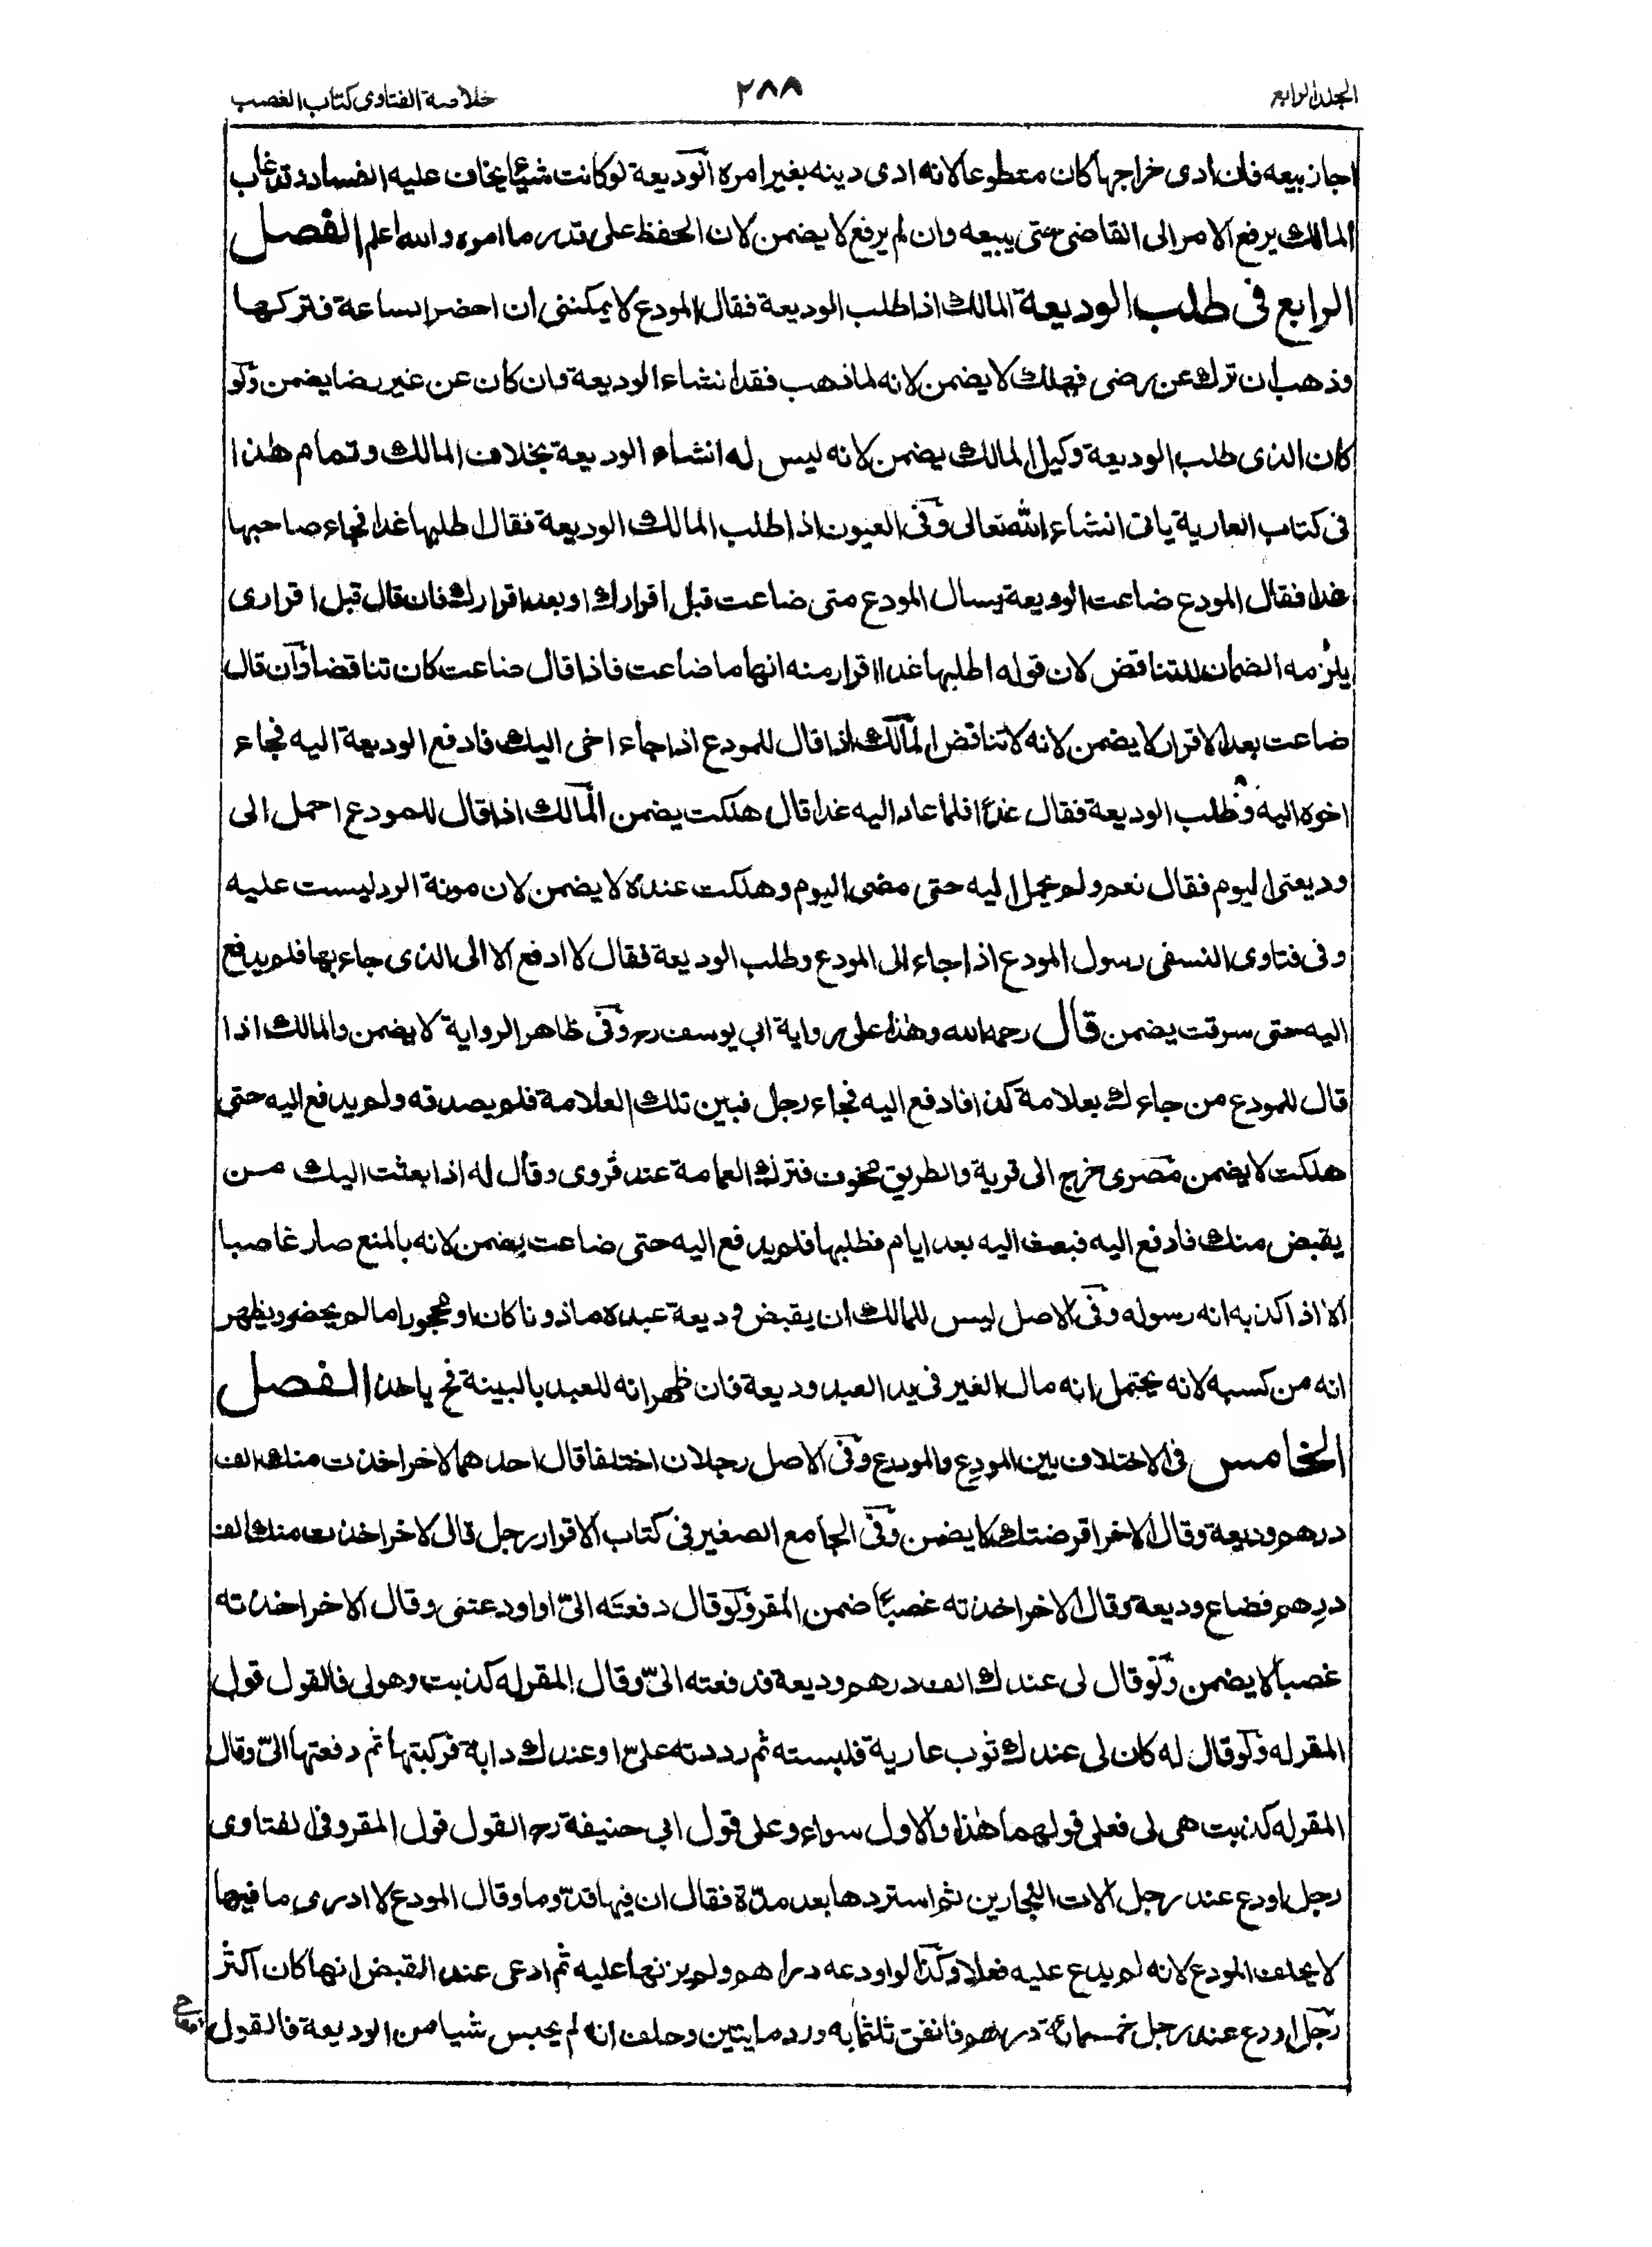 الجلد الرابع
٢٨٨
خلاصة الفتاوى كتاب الغصب
اجاز بيعه فان ادى خراجها كان متطوعا لانه ادى دينه بغير امره الوديعة لو كانت شيئا يخاف عليه الفساد وقد غاب
المالك يرفع الامر الى القاضى حتى يبيعه وان لم يرفع لا يضمن لان الحفظ على قدر ما امره والله اعلم الفصل
الرابع فى طلب الوديعة المالك اذا طلب الوديعة فقال المودع لا يمكننى ان احضر الساعة فتركها
وذهب ان ترك عن رضى فهلك لا يضمن لانه لما ذهب فقد انشاء الوديعة وان كان عن غير رضا يضمن ولو
كان الذى طلب الوديعة وكيل المالك يضمن لانه ليس له انشاء الوديعة بخلاف المالك وتمام هذا
فى كتاب العارية ياتى انشاء الله تعالى وفى العيون اذا طلب المالك الوديعة فقال اطلبها غدا فجاء صاحبها
غدا فقال المودع ضاعت الوديعة يسال المودع متى ضاعت قبل اقرارك او بعد اقرارك فان قال قبل اقرارى
يلزمه الضمان للتناقض لان قوله اطلبها غدا اقرار منه انها ما ضاعت فاذا قال ضاعت كان تناقضا وان قال
ضاعت بعد الاقرار لا يضمن لانه لا تناقض المالك اذا قال للمودع اذا جاء اخى اليك فادفع الوديعة اليه فجاء
اخوه اليه وطلب الوديعة فقال غدا فلما عاد اليه غدا قال هلكت يضمن المالك اذا قال للمودع احمل الى
وديعتى اليوم فقال نعم ولم يحمل اليه حتى مضى اليوم وهلكت عنده لا يضمن لان مونة الرد ليست عليه
وفى فتاوى النسفى رسول المودع اذا جاء الى المودع وطلب الوديعة فقال لا ادفع الا الى الذى جاء بها فلم يدفع
اليه حتى سرقت يضمن قال رحمه الله وهذا على رواية ابى يوسف رح وفى ظاهر الرواية لا يضمن والمالك اذا
قال للمودع من جاءك بعلامة كذا فادفع اليه فجاء رجل فبين تلك العلامة فلم يصدقه ولم يدفع اليه حتى
هلكت لا يضمن مصرى خرج الى قرية والطريق مخوف فترك العمامة عند قروى وقال له اذا بعثت اليك من
يقبض منك فادفع اليه فبعث اليه بعد ايام فطلبها فلم يدفع اليه حتى ضاعت يضمن لانه بالمنع صار غاصبا
الا اذا كذبه انه رسوله وفى الاصل ليس للمالك ان يقبض وديعة عبده ماذونا كان او محجورا ما لم يحضر ويظهر
انه من كسبه لانه يحتمل انه مال الغير فى يد العبد وديعة فان ظهر انه للعبد بالبينة فح ياخذ الفصل
الخامس فى الاختلاف بين المودِع والمودع وفى الاصل رجلان اختلفا قال احدهما لاخر اخذت منك الف
درهم وديعة وقال الاخر اقرضتك لا يضمن وفى الجامع الصغير فى كتاب الاقرار رجل قال لاخر اخذت منك الف
درهم فضاع وديعة وقال الاخر اخذته غصبا ضمن المقر ولو قال دفعته الىّ او اودعتنى وقال الاخر اخذته
غصبا لا يضمن ولو قال لى عندك الف درهم وديعة فدفعته الىّ وقال المقر له كذبت وهو لى فالقول قول
المقر له ولو قال له كان لى عندك ثوب عارية فلبسته ثم رددته علىّ او عندك دابة فركبتها ثم دفعتها الىّ وقال
المقر له كذبت هى لى فعلى قولهما هذا والاول سواء وعلى قول ابى حنيفة رح القول قول المقر وفى الفتاوى
رجل اودع عند رجل الات النجارين ثم استردها بعد مدّة فقال ان فيها قدّوما وقال المودع لا ادرى ما فيها
لا يحلف المودع لانه لم يدع عليه فعلا وكذا لو اودعه دراهم ولم يزنها عليه ثم ادعى عند القبض انها كان اكثر
رجل اودع عند رجل خمسمائة درهم فانفق ثلثمايه ورد مايتين وحلف انه لم يحبس شيا من الوديعة فالقول